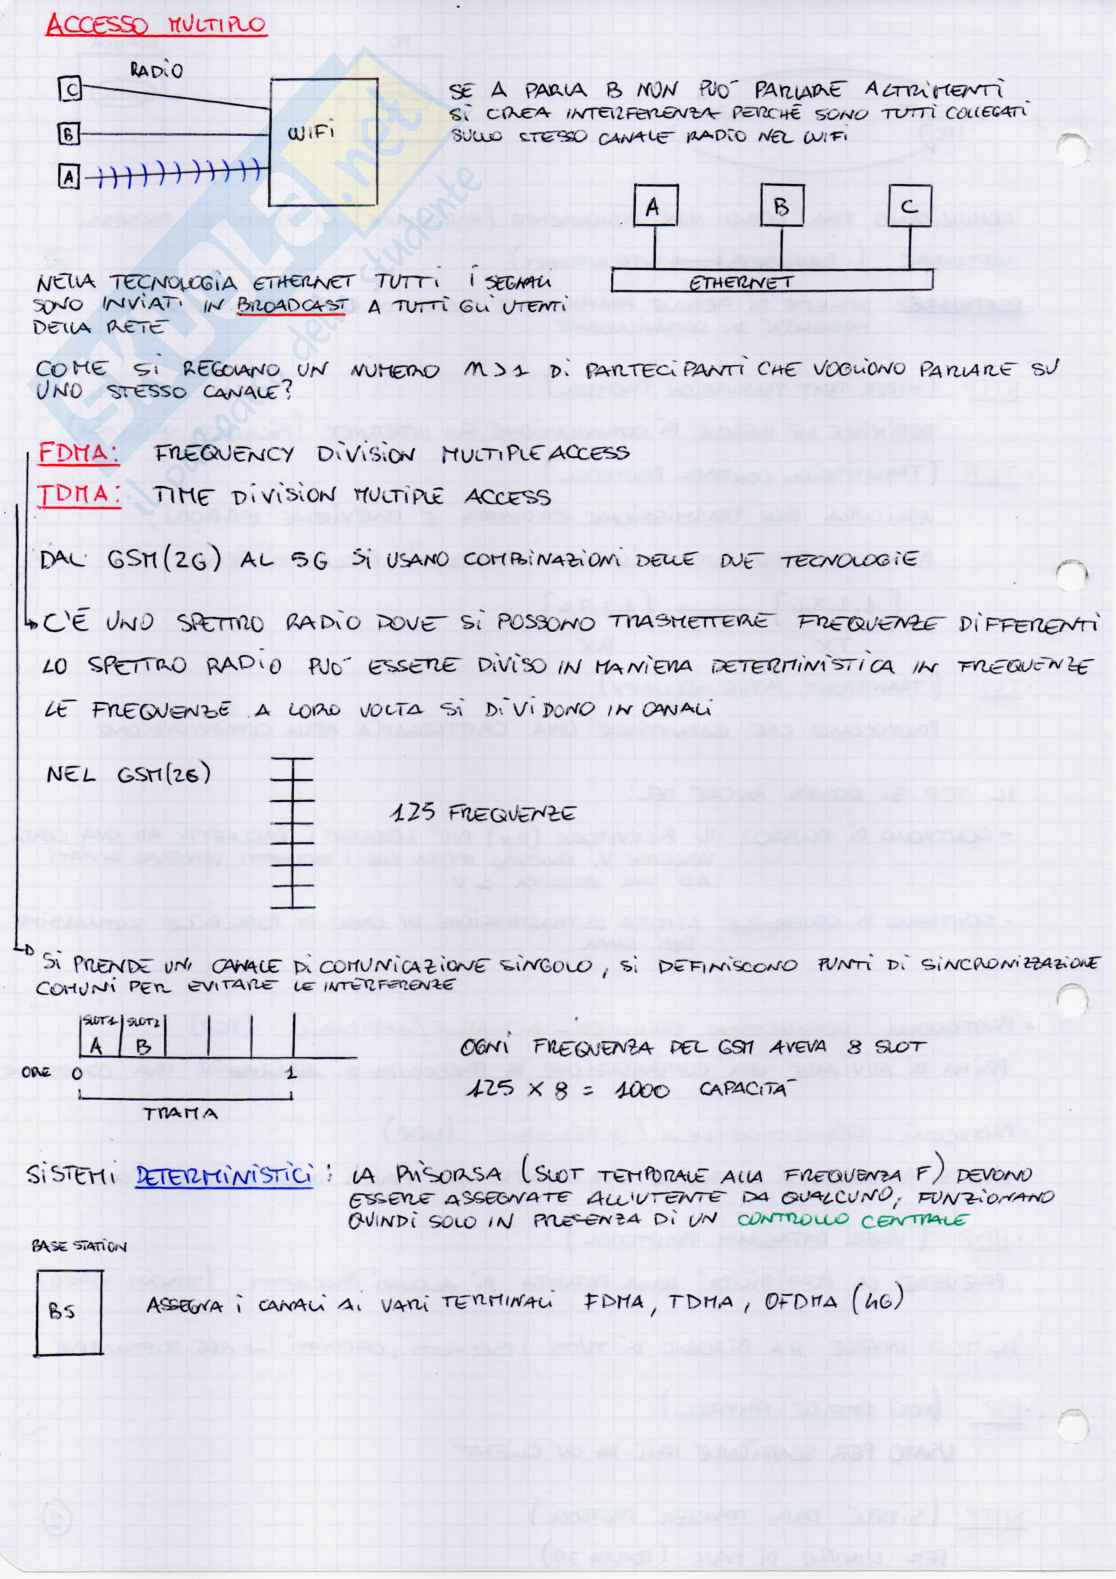 ACCESSO MULTIPLO
RADIO
C
B
A
WIFI
SE A PARLA B NON PUO' PARLARE ALTRIMENTI
SI CREA INTERFERENZA PERCHÉ SONO TUTTI COLLEGATI
SULLO STESSO CANALE RADIO NEL WIFI
A B C
ETHERNET
NELLA TECNOLOGIA ETHERNET TUTTI I SEGNALI
SONO INVIATI IN BROADCAST A TUTTI GLI UTENTI
DELLA RETE
COME SI REGOLANO UN NUMERO M>1 DI PARTECIPANTI CHE VOGLIONO PARLARE SU
UNO STESSO CANALE?
FDMA: FREQUENCY DIVISION MULTIPLE ACCESS
TDMA: TIME DIVISION MULTIPLE ACCESS
DAL GSM(2G) AL 5G SI USANO COMBINAZIONI DELLE DUE TECNOLOGIE
C'È UNO SPETTRO RADIO DOVE SI POSSONO TRASMETTERE FREQUENZE DIFFERENTI
LO SPETTRO RADIO PUO' ESSERE DIVISO IN MANIERA DETERMINISTICA IN FREQUENZE
LE FREQUENZE A LORO VOLTA SI DIVIDONO IN CANALI
NEL GSM(2G)
125 FREQUENZE
SI PRENDE UN CANALE DI COMUNICAZIONE SINGOLO, SI DEFINISCONO PUNTI DI SINCRONIZZAZIONE
COMUNI PER EVITARE LE INTERFERENZE
SLOT1 SLOT2
A B
ORE 0 1
TRAMA
OGNI FREQUENZA DEL GSM AVEVA 8 SLOT
125 X 8 = 1000 CAPACITÀ
SISTEMI DETERMINISTICI: LA RISORSA (SLOT TEMPORALE ALLA FREQUENZA F) DEVONO
ESSERE ASSEGNATE ALL'UTENTE DA QUALCUNO, FUNZIONANO
QUINDI SOLO IN PRESENZA DI UN CONTROLLO CENTRALE
BASE STATION
BS
ASSEGNA I CANALI AI VARI TERMINALI FDMA, TDMA, OFDMA (4G)
SKUOLA.net
il portale dello studente